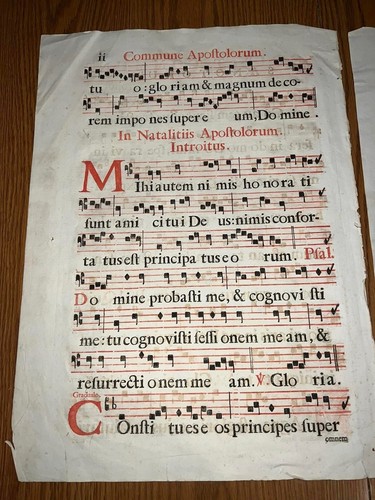 ii Commune Apoſtolorum.
tu o: glo riam & magnum de co-
rem impo nes ſuper e um, Do mine.
In Natalitiis Apoſtolorum.
Introitus.
MIhi autem ni mis ho no ra ti
ſunt ami ci tu i De us: nimis confor-
ta tus eſt principa tus e o rum. Pſal.
Do mine probaſti me, & cognovi ſti
me: tu cognoviſti ſeſſi onem me am, &
reſurrecti onem me am. ℣. Glo ria.
Graduale.
COnſti tu es e os principes ſuper
omnem